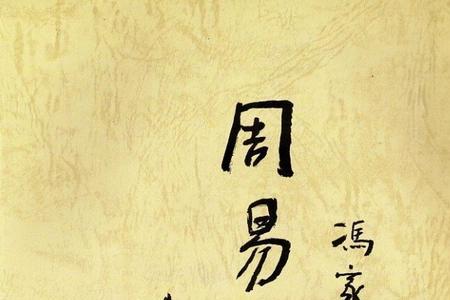 周易
馮家